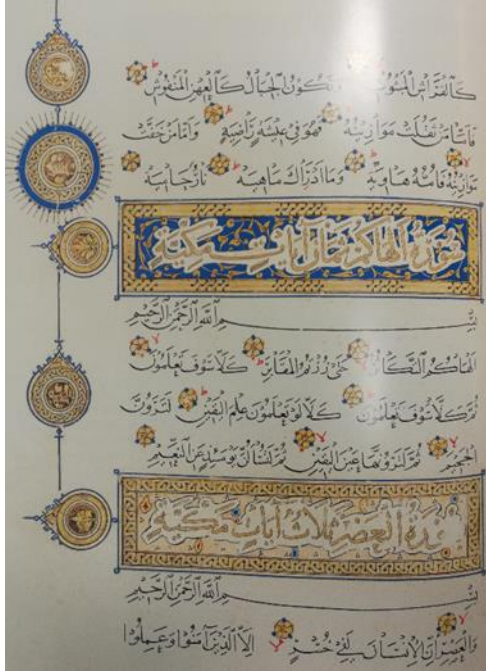 كَٱلْفَرَاشِ ٱلْمَبْثُوثِ وَتَكُونُ ٱلْجِبَالُ كَٱلْعِهْنِ ٱلْمَنْفُوشِ
فَأَمَّا مَنْ ثَقُلَتْ مَوَازِينُهُ فَهُوَ فِي عِيشَةٍ رَاضِيَةٍ وَأَمَّا مَنْ خَفَّتْ
مَوَازِينُهُ فَأُمُّهُ هَاوِيَةٌ وَمَا أَدْرَاكَ مَاهِيَهْ نَارٌ حَامِيَةٌ
سُورَةُ أَلْهَاكُمْ ثَمَانُ آيَاتٍ مَكِّيَّةٌ
بِسْمِ ٱللَّهِ ٱلرَّحْمَٰنِ ٱلرَّحِيمِ
أَلْهَاكُمُ ٱلتَّكَاثُرُ حَتَّىٰ زُرْتُمُ ٱلْمَقَابِرَ كَلَّا سَوْفَ تَعْلَمُونَ
ثُمَّ كَلَّا سَوْفَ تَعْلَمُونَ كَلَّا لَوْ تَعْلَمُونَ عِلْمَ ٱلْيَقِينِ لَتَرَوُنَّ
ٱلْجَحِيمَ ثُمَّ لَتَرَوُنَّهَا عَيْنَ ٱلْيَقِينِ ثُمَّ لَتُسْأَلُنَّ يَوْمَئِذٍ عَنِ ٱلنَّعِيمِ
سُورَةُ ٱلْعَصْرِ ثَلَاثُ آيَاتٍ مَكِّيَّةٌ
بِسْمِ ٱللَّهِ ٱلرَّحْمَٰنِ ٱلرَّحِيمِ
وَٱلْعَصْرِ إِنَّ ٱلْإِنْسَانَ لَفِي خُسْرٍ إِلَّا ٱلَّذِينَ آمَنُوا وَعَمِلُوا